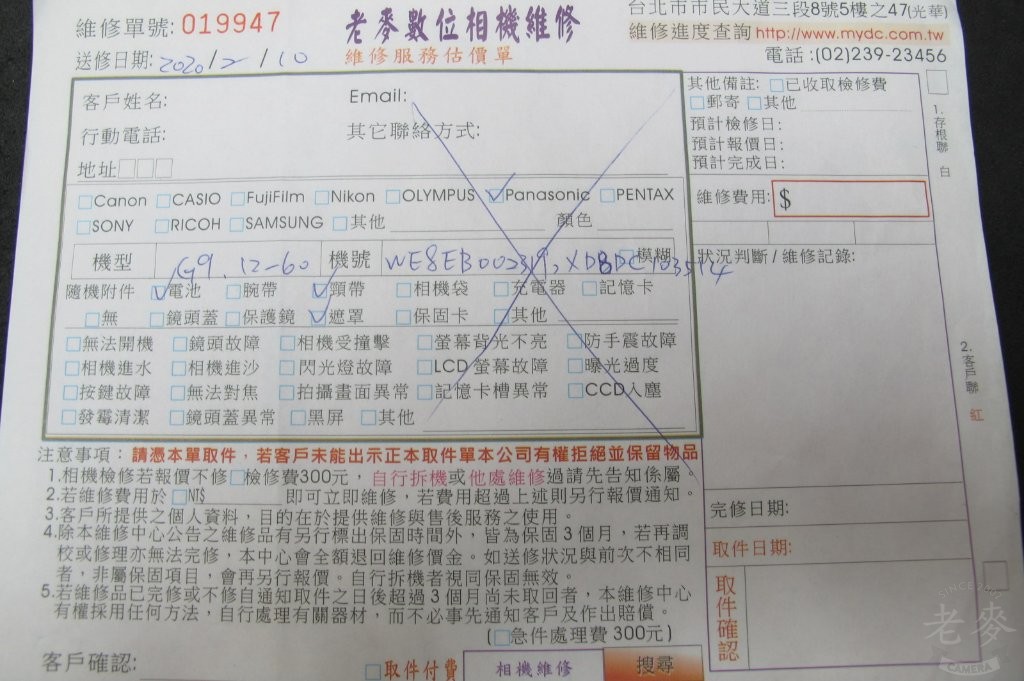 維修單號: 019947
老麥數位相機維修
台北市市民大道三段8號5樓之47(光華)
維修進度查詢 http://www.mydc.com.tw
送修日期: 2020/2/10
維修服務估價單
電話:(02)239-23456
客戶姓名: Email:
行動電話: 其它聯絡方式:
地址□□□
□Canon □CASIO □FujiFilm □Nikon □OLYMPUS ☑Panasonic □PENTAX
□SONY □RICOH □SAMSUNG □其他 顏色
機型 G9, 12-60 機號 □模糊
隨機附件 ☑電池 □腕帶 ☑頸帶 □相機袋 □充電器 □記憶卡
□無 □鏡頭蓋 □保護鏡 ☑遮罩 □保固卡 □其他
□無法開機 □鏡頭故障 □相機受撞擊 □螢幕背光不亮 □防手震故障
□相機進水 □相機進沙 □閃光燈故障 □LCD 螢幕故障 □曝光過度
□按鍵故障 □無法對焦 □拍攝畫面異常 □記憶卡槽異常 □CCD入塵
□發霉清潔 □鏡頭蓋異常 □黑屏 □其他
其他備註: □已收取檢修費
□郵寄 □其他
預計檢修日:
預計報價日:
預計完成日:
維修費用: $
狀況判斷/維修記錄:
完修日期:
取件日期:
取件確認
1.存根聯 白
2.客戶聯 紅
注意事項: 請憑本單取件,若客戶未能出示正本取件單本公司有權拒絕並保留物品
1.相機檢修若報價不修□檢修費300元,自行拆機或他處維修過請先告知係屬。
2.若維修費用於□NT$ 即可立即維修,若費用超過上述則另行報價通知。
3.客戶所提供之個人資料,目的在於提供維修與售後服務之使用。
4.除本維修中心公告之維修品有另行標出保固時間外,皆為保固3個月,若再調
校或修理亦無法完修,本中心會全額退回維修價金。如送修狀況與前次不相同
者,非屬保固項目,會再另行報價。自行拆機者視同保固無效。
5.若維修品已完修或不修自通知取件之日後超過3個月尚未取回者,本維修中心
有權採用任何方法,自行處理有關器材,而不必事先通知客戶及作出賠償。
(□急件處理費 300元)
客戶確認: □取件付費 相機維修 搜尋
老麥
CAMERA